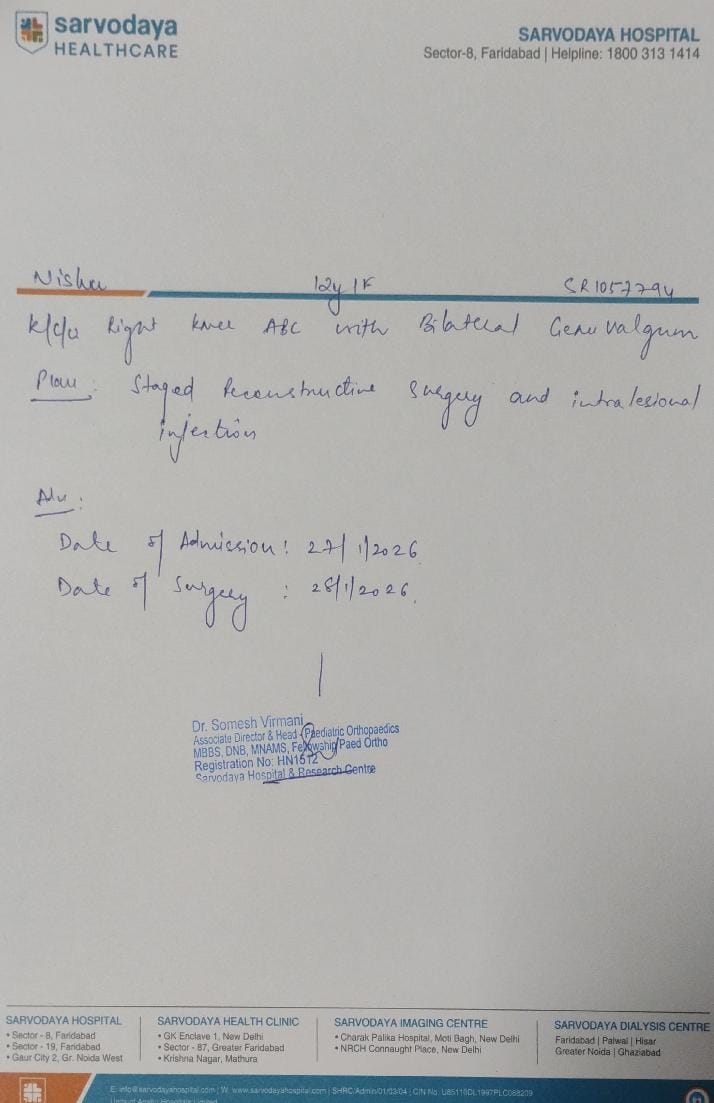 sarvodaya
HEALTHCARE
SARVODAYA HOSPITAL
Sector-8, Faridabad | Helpline: 1800 313 1414
Nisha 12y/F SR1057794
k/c/o Right knee ABC with Bilateral Genu valgum
Plan: Staged Reconstructive Surgery and intralesional
injection
Adv:
Date of Admission: 27/1/2026
Date of Surgery : 28/1/2026.
Dr. Somesh Virmani
Associate Director & Head - Paediatric Orthopaedics
MBBS, DNB, MNAMS, Fellowship Paed Ortho
Registration No: HN1512
Sarvodaya Hospital & Research Centre
SARVODAYA HOSPITAL
• Sector - 8, Faridabad
• Sector - 19, Faridabad
• Gaur City 2, Gr. Noida West
SARVODAYA HEALTH CLINIC
• GK Enclave 1, New Delhi
• Sector - 87, Greater Faridabad
• Krishna Nagar, Mathura
SARVODAYA IMAGING CENTRE
• Charak Palika Hospital, Moti Bagh, New Delhi
• NRCH Connaught Place, New Delhi
SARVODAYA DIALYSIS CENTRE
Faridabad | Palwal | Hisar
Greater Noida | Ghaziabad
E: info@sarvodayahospital.com | W: www.sarvodayahospital.com | SHRC/Admin/01/03/04 | CIN No. U85110DL1997PLC088209